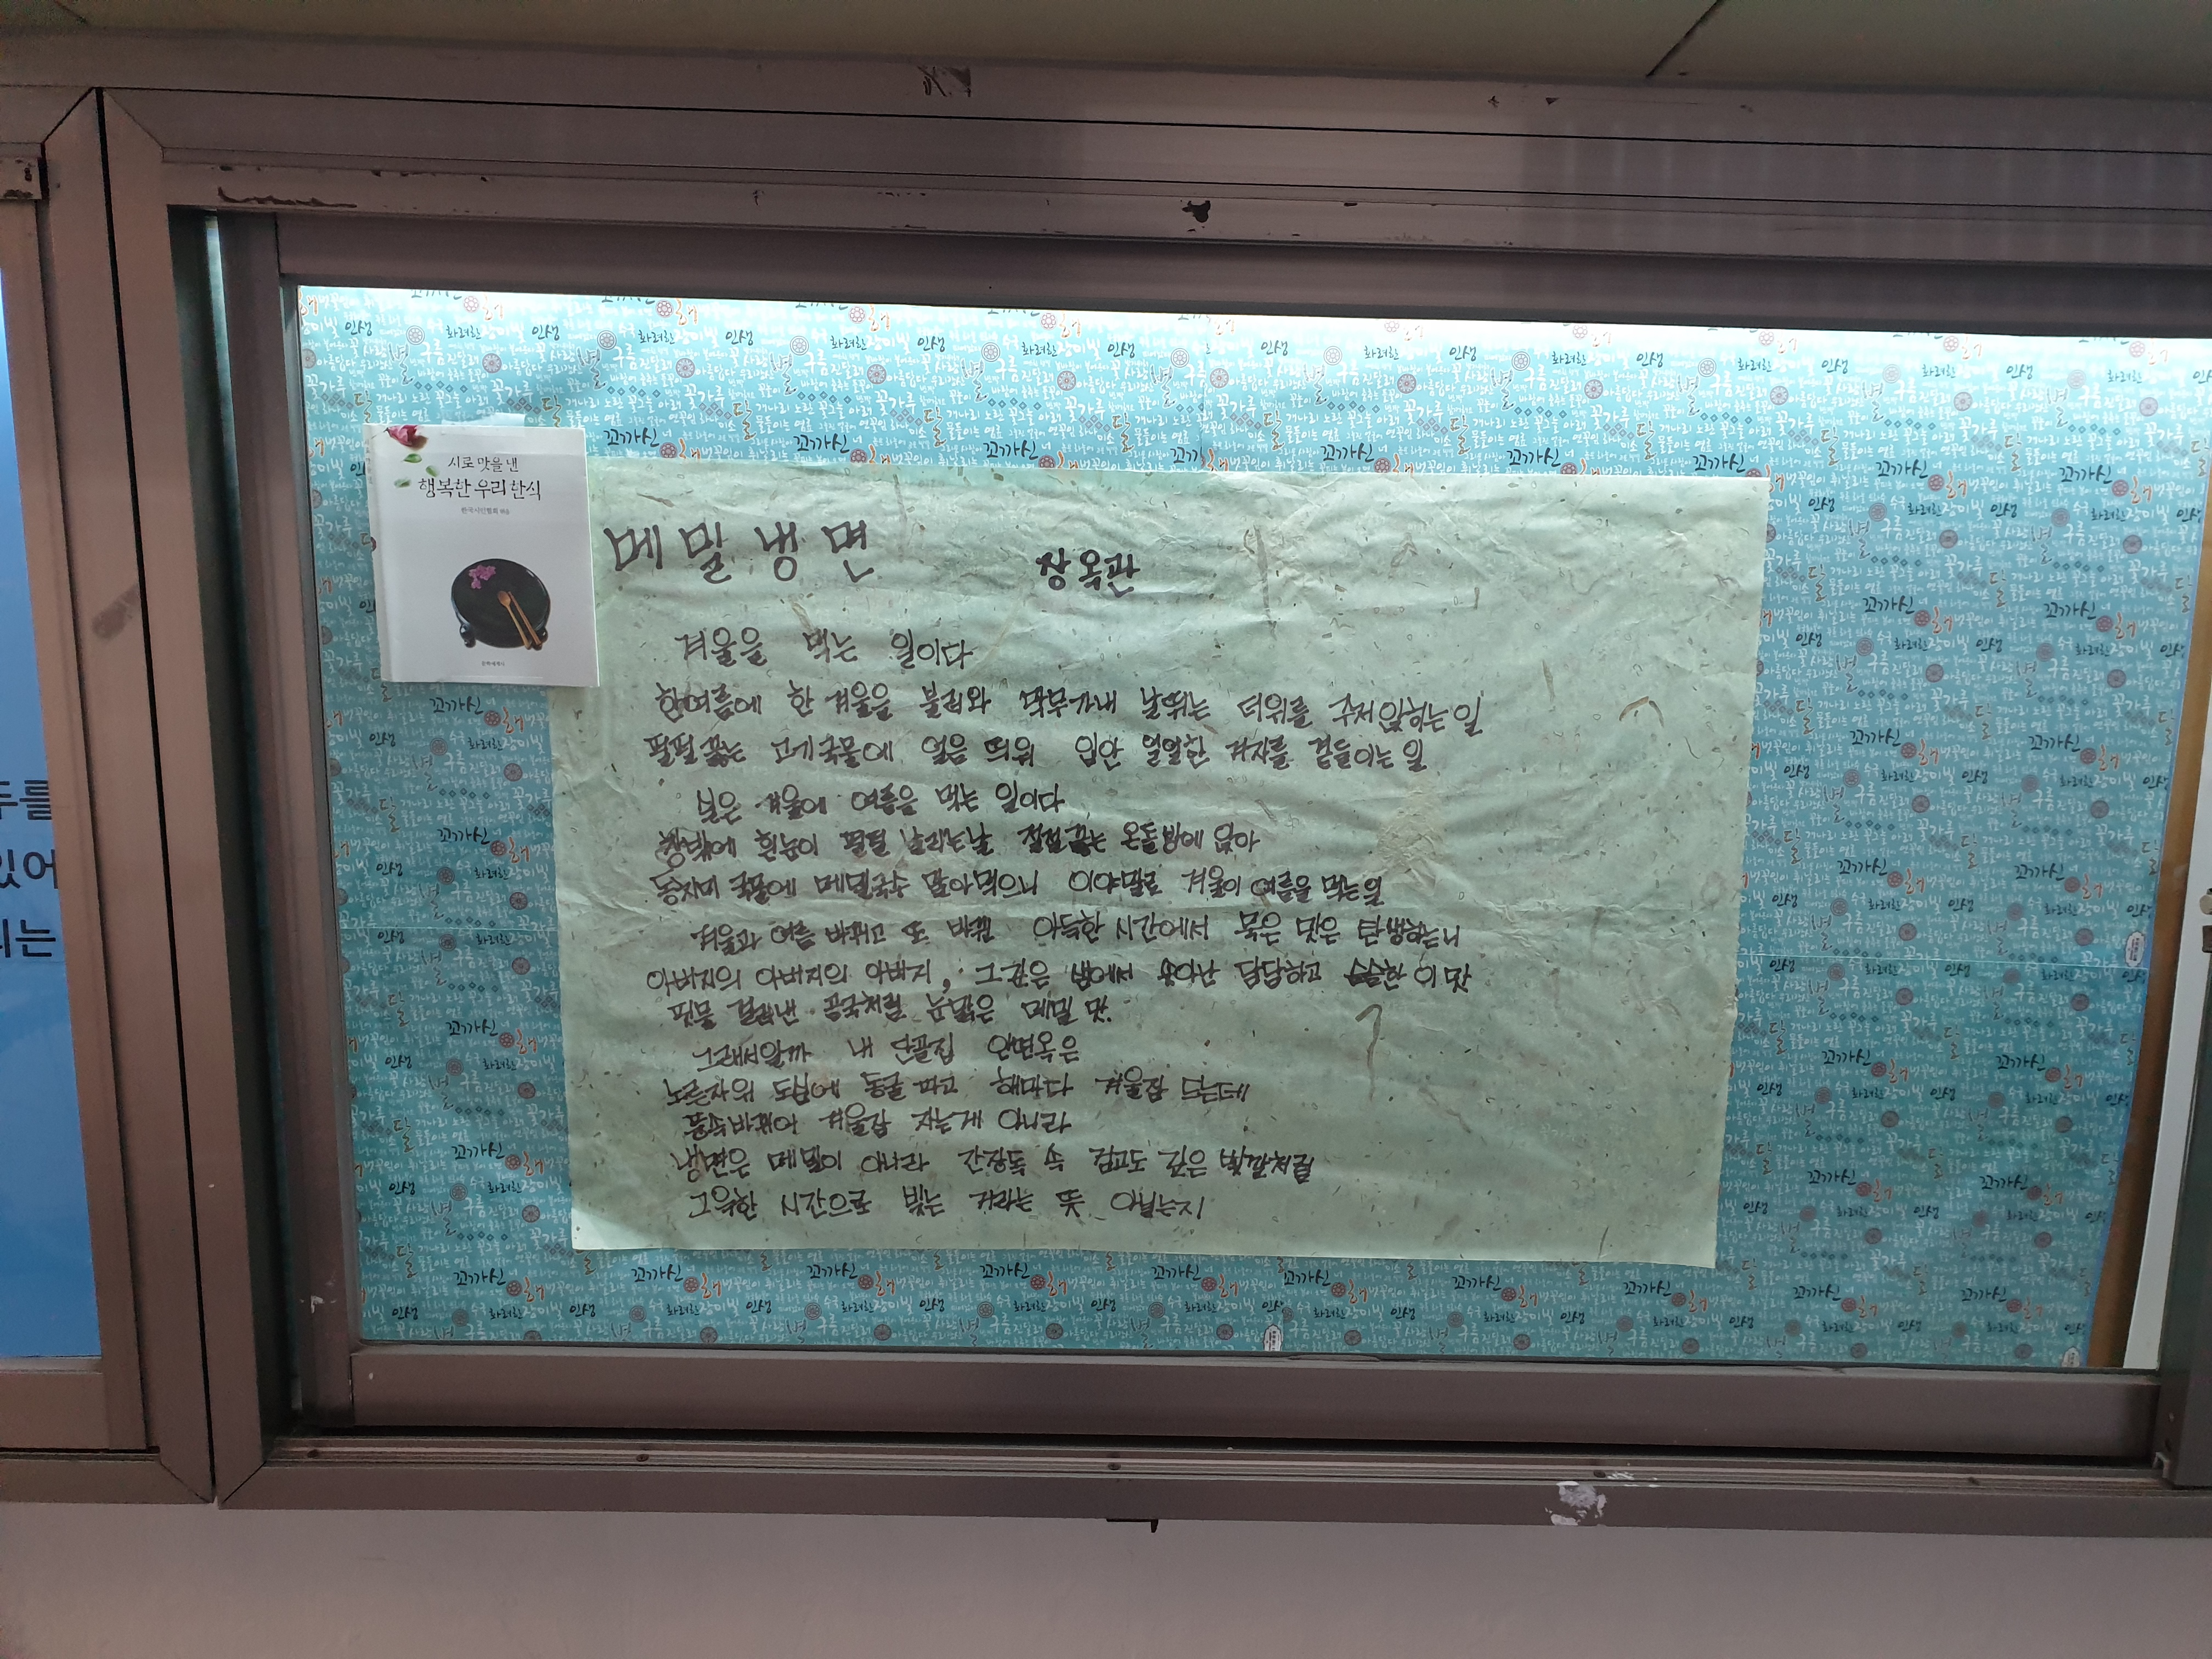 시로 맛을 낸
행복한 우리 한식
한국시인협회 엮음
문학세계사
메밀냉면
장옥관
겨울을 먹는 일이다
한여름에 한 겨울을 불러와 막무가내 날뛰는 더위를 주저앉히는 일
펄펄 끓는 고기국물에 얼음 띄워 입안 얼얼한 겨자를 곁들이는 일
실은 겨울에 여름을 먹는 일이다
창밖에 흰눈이 펄펄 날리는날 절절끓는 온돌방에 앉아
동치미 국물에 메밀국수 말아먹으니 이야말로 겨울이 여름을 먹는일
겨울과 여름 바뀌고 또 바뀐 아득한 시간에서 묵은 맛은 탄생하느니
아버지의 아버지의 아버지, 그 깊은 샘에서 솟아난 담담하고 슴슴한 이 맛
핏물 걸러낸 곰국처럼 눈맑은 메밀 맛.
그래서일까 내 단골집 안면옥은
노른자위 도심에 동굴 파고 해마다 겨울잠 드는데
풍속바뀌어 겨울잠 자는게 아니라
냉면은 메밀이 아니라 간장독 속 검고도 깊은 빛깔처럼
그윽한 시간으로 빚는 거라는 뜻 아닐는지
두를
있어
리는
꼬까신
해
인생
화려한
장미빛
별
구름
진달래
아름답다
꽃가루
달
개나리 노란 꽃그늘 아래